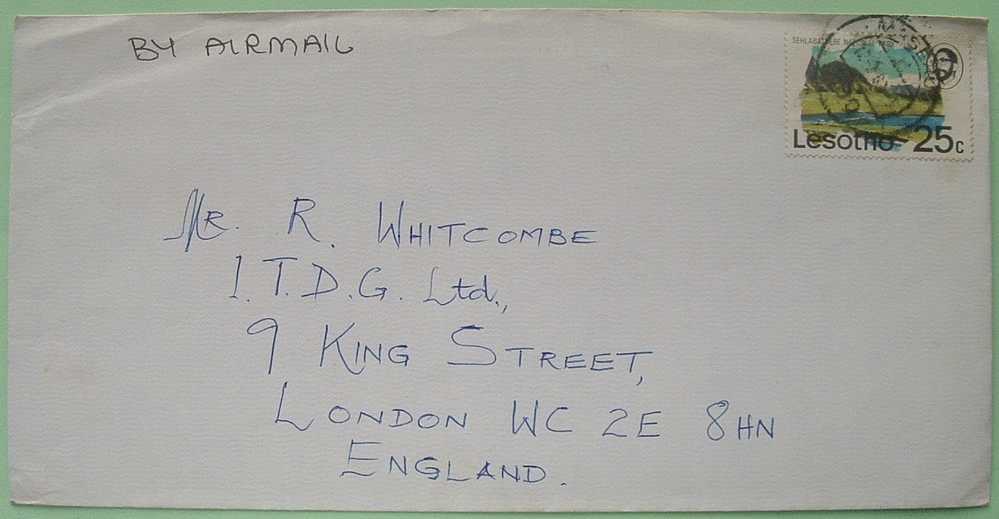 BY AIRMAIL
SEHLABATHEBE NATIONAL PARK
Lesotho 25c
Mr. R. WHITCOMBE
I.T.D.G. Ltd.,
9 KING STREET,
LONDON WC 2E 8HN
ENGLAND.